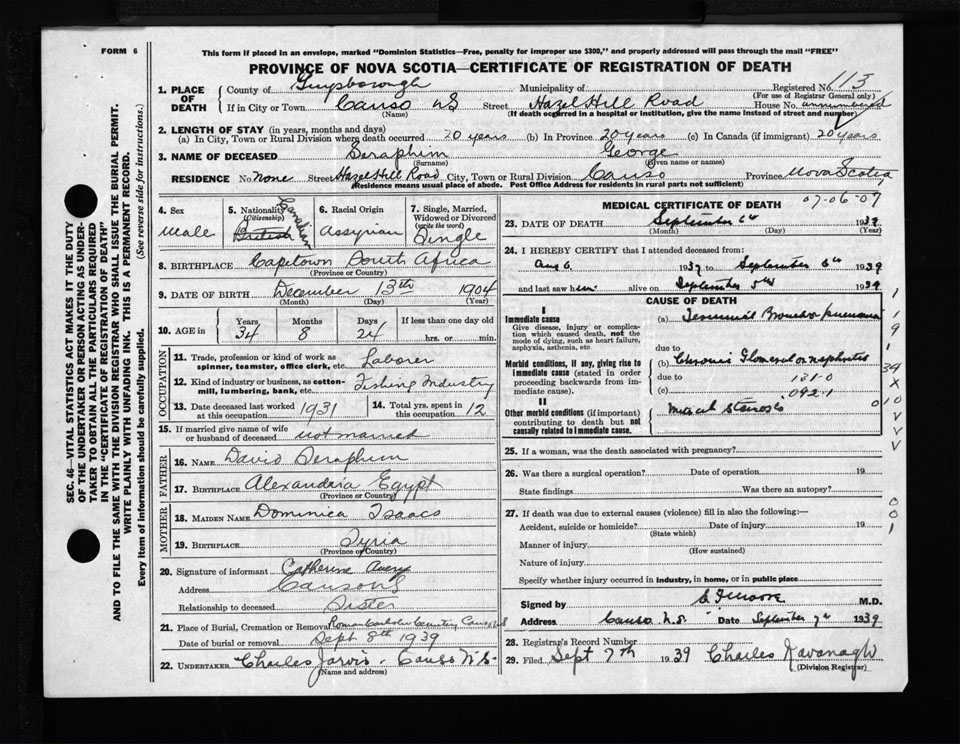 FORM 6
This form if placed in an envelope, marked "Dominion Statistics—Free, penalty for improper use $300," and properly addressed will pass through the mail "FREE"
PROVINCE OF NOVA SCOTIA—CERTIFICATE OF REGISTRATION OF DEATH
SEC. 46—VITAL STATISTICS ACT MAKES IT THE DUTY
OF THE UNDERTAKER OR PERSON ACTING AS UNDER-
TAKER TO OBTAIN ALL THE PARTICULARS REQUIRED
IN THE "CERTIFICATE OF REGISTRATION OF DEATH"
AND TO FILE THE SAME WITH THE DIVISION REGISTRAR WHO SHALL ISSUE THE BURIAL PERMIT.
WRITE PLAINLY WITH UNFADING INK. THIS IS A PERMANENT RECORD.
Every item of information should be carefully supplied. (See reverse side for instructions.)
1. PLACE OF DEATH County of Guysborough Municipality of Registered No. 113
(For use of Registrar General only)
If in City or Town Canso NS Street Hazel Hill Road House No. unnumbered
(Name) (If death occurred in a hospital or institution, give the name instead of street and number)
2. LENGTH OF STAY (in years, months and days)
(a) In City, Town or Rural Division where death occurred 20 years (b) In Province 20 years (c) In Canada (if immigrant) 20 years
3. NAME OF DECEASED Seraphim George
(Surname) (Given name or names)
RESIDENCE No. None Street Hazel Hill Road City, Town or Rural Division Canso Province Nova Scotia
(Residence means usual place of abode. Post Office Address for residents in rural parts not sufficient)
4. Sex Male
5. Nationality (Citizenship) British Canadian
6. Racial Origin Assyrian
7. Single, Married, Widowed or Divorced (write the word) Single
8. BIRTHPLACE Capetown South Africa
(Province or Country)
9. DATE OF BIRTH December 13th 1904
(Month) (Day) (Year)
10. AGE in Years Months Days If less than one day old
34 8 24 hrs. or min.
OCCUPATION
11. Trade, profession or kind of work as spinner, teamster, office clerk, etc. Laborer
12. Kind of industry or business, as cotton-mill, lumbering, bank, etc. Fishing Industry
13. Date deceased last worked at this occupation 1931
14. Total yrs. spent in this occupation 12
15. If married give name of wife or husband of deceased not married
FATHER
16. NAME David Seraphim
17. BIRTHPLACE Alexandria Egypt
(Province or Country)
MOTHER
18. MAIDEN NAME Dominica Isaacs
19. BIRTHPLACE Syria
(Province or Country)
20. Signature of informant Catherine Avery
Address Canso NS
Relationship to deceased Sister
21. Place of Burial, Cremation or Removal Roman Catholic Cemetery Canso NS
Date of burial or removal Sept 8th 1939
22. UNDERTAKER Charles Jarvis - Canso N.S.
(Name and address)
MEDICAL CERTIFICATE OF DEATH 07-06-07
23. DATE OF DEATH September 6th 1939
(Month) (Day) (Year)
24. I HEREBY CERTIFY that I attended deceased from:
Aug 6 1939 to September 6th 1939
and last saw him alive on September 5th 1939
CAUSE OF DEATH
I
Immediate cause
Give disease, injury or complication which caused death, not the mode of dying, such as heart failure, asphyxia, asthenia, etc.
(a) Terminal Broncho pneumonia
due to
Morbid conditions, if any, giving rise to immediate cause (stated in order proceeding backwards from immediate cause).
(b) Chronic Glomerulo nephritis
due to 131-0
(c) 092.1
II
Other morbid conditions (if important) contributing to death but not causally related to immediate cause.
Mitral Stenosis
25. If a woman, was the death associated with pregnancy?
26. Was there a surgical operation? Date of operation 19
State findings Was there an autopsy?
27. If death was due to external causes (violence) fill in also the following:—
Accident, suicide or homicide? Date of injury 19
(State which)
Manner of injury
(How sustained)
Nature of injury
Specify whether injury occurred in industry, in home, or in public place
Signed by C F Moore M.D.
Address Canso N.S. Date September 7th 1939
28. Registrar's Record Number
29. Filed Sept 7th 1939 Charles Kavanagh
(Division Registrar)